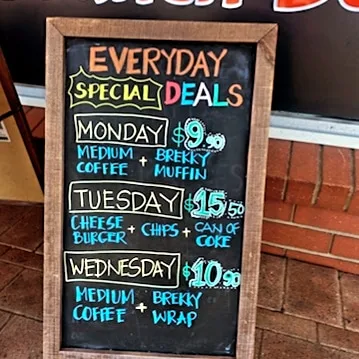 EVERYDAY
SPECIAL DEALS
MONDAY $9.90
MEDIUM COFFEE + BREKKY MUFFIN
TUESDAY $15.50
CHEESE BURGER + CHIPS + CAN OF COKE
WEDNESDAY $10.90
MEDIUM COFFEE + BREKKY WRAP